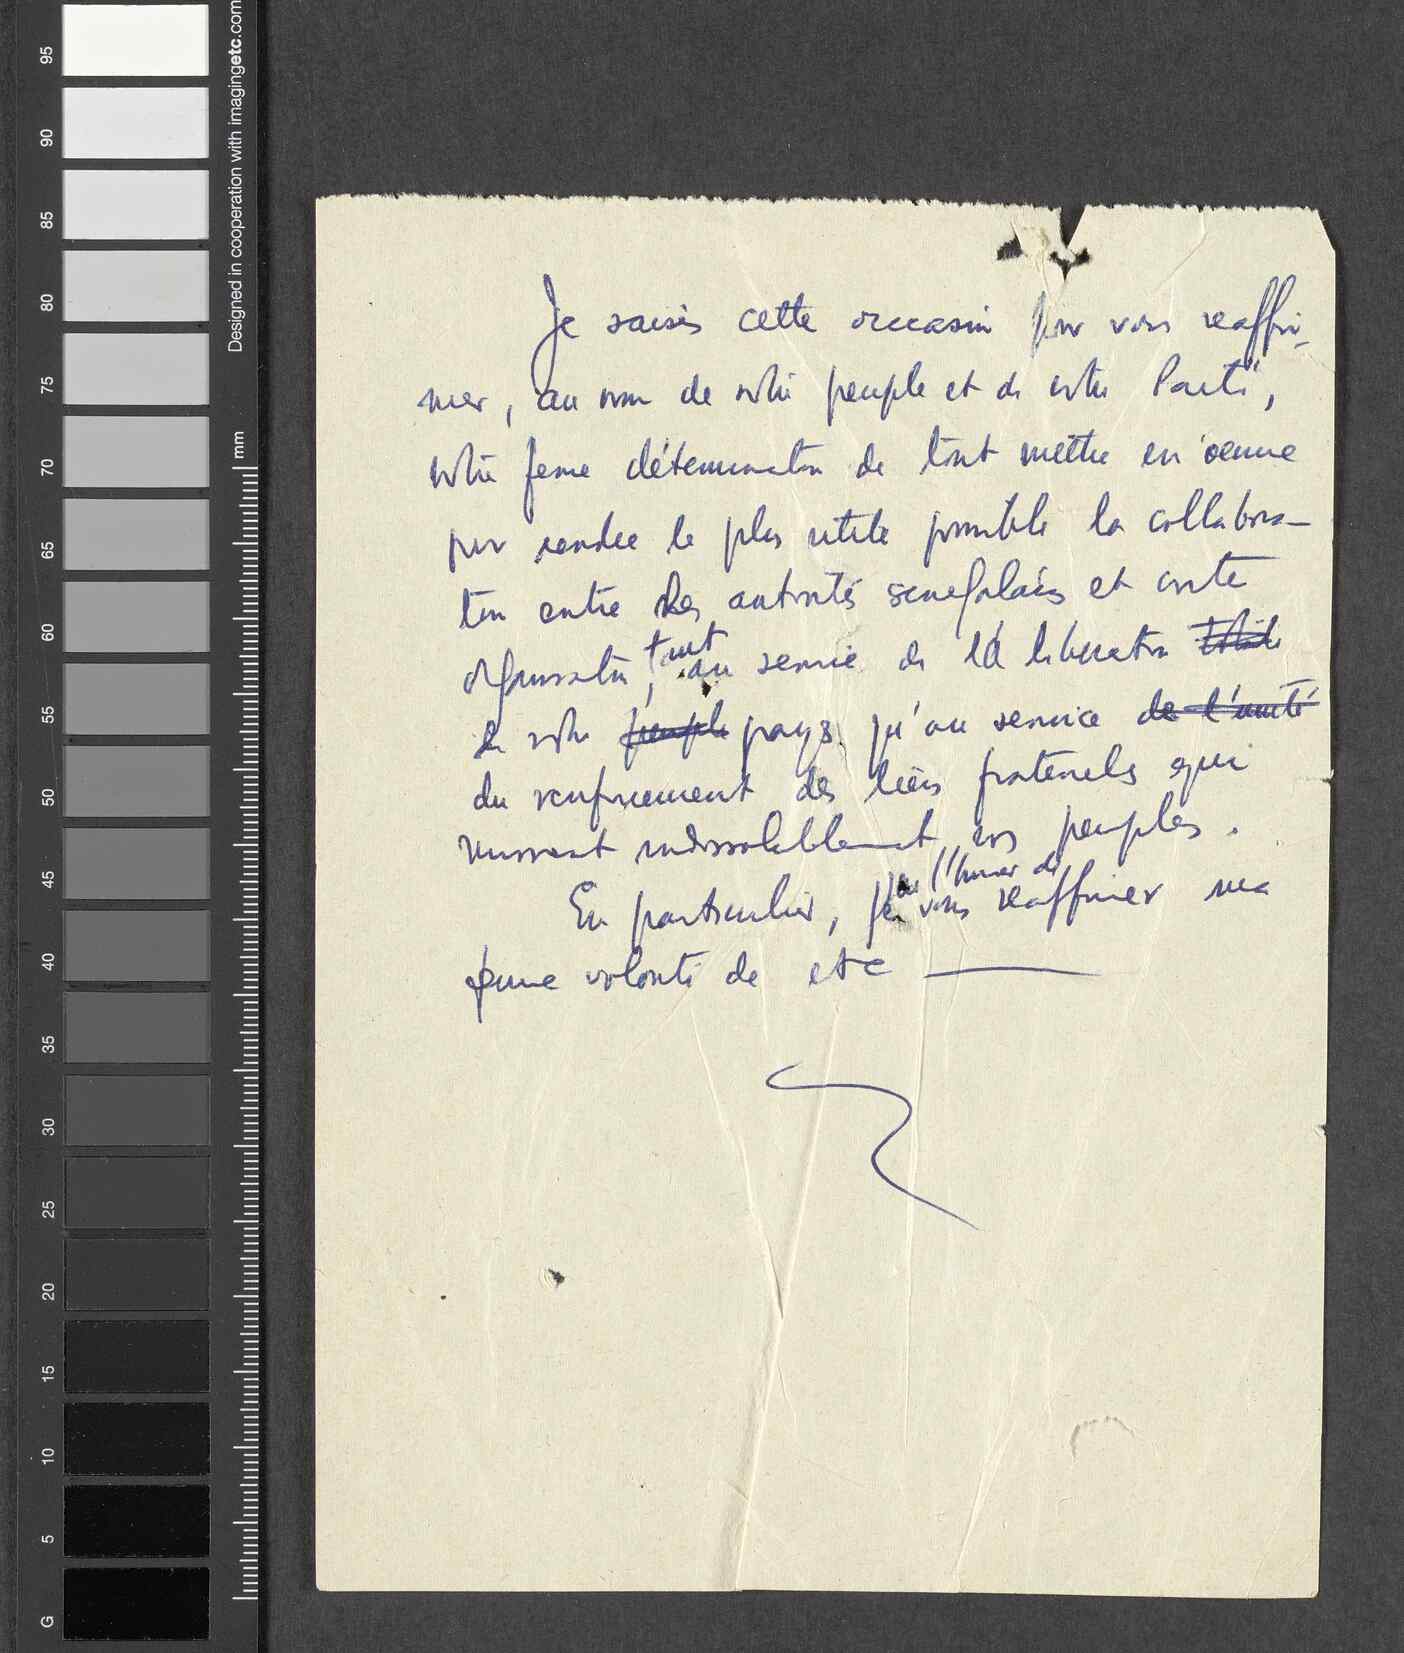 Je saisis cette occasion pour vous reaffir-
mer, au nom de notre peuple et de notre Parti,
notre ferme détermination de tout mettre en oeuvre
pour rendre le plus utile possible la collabora-
tion entre les autorités senegalaises et notre
organisation, tant au service de la liberation
de notre peuple pays qu'au service de l'unité
du renforcement des liens fraternels qui
unissent indissolublement nos peuples.
En particulier, j'ai l'honneur de vous reaffirmer ma
ferme volonté de etc
95
90
85
80
75
70
65
60
55
50
45
40
35
30
25
20
15
10
5
G
mm
Designed in cooperation with imagingetc.com